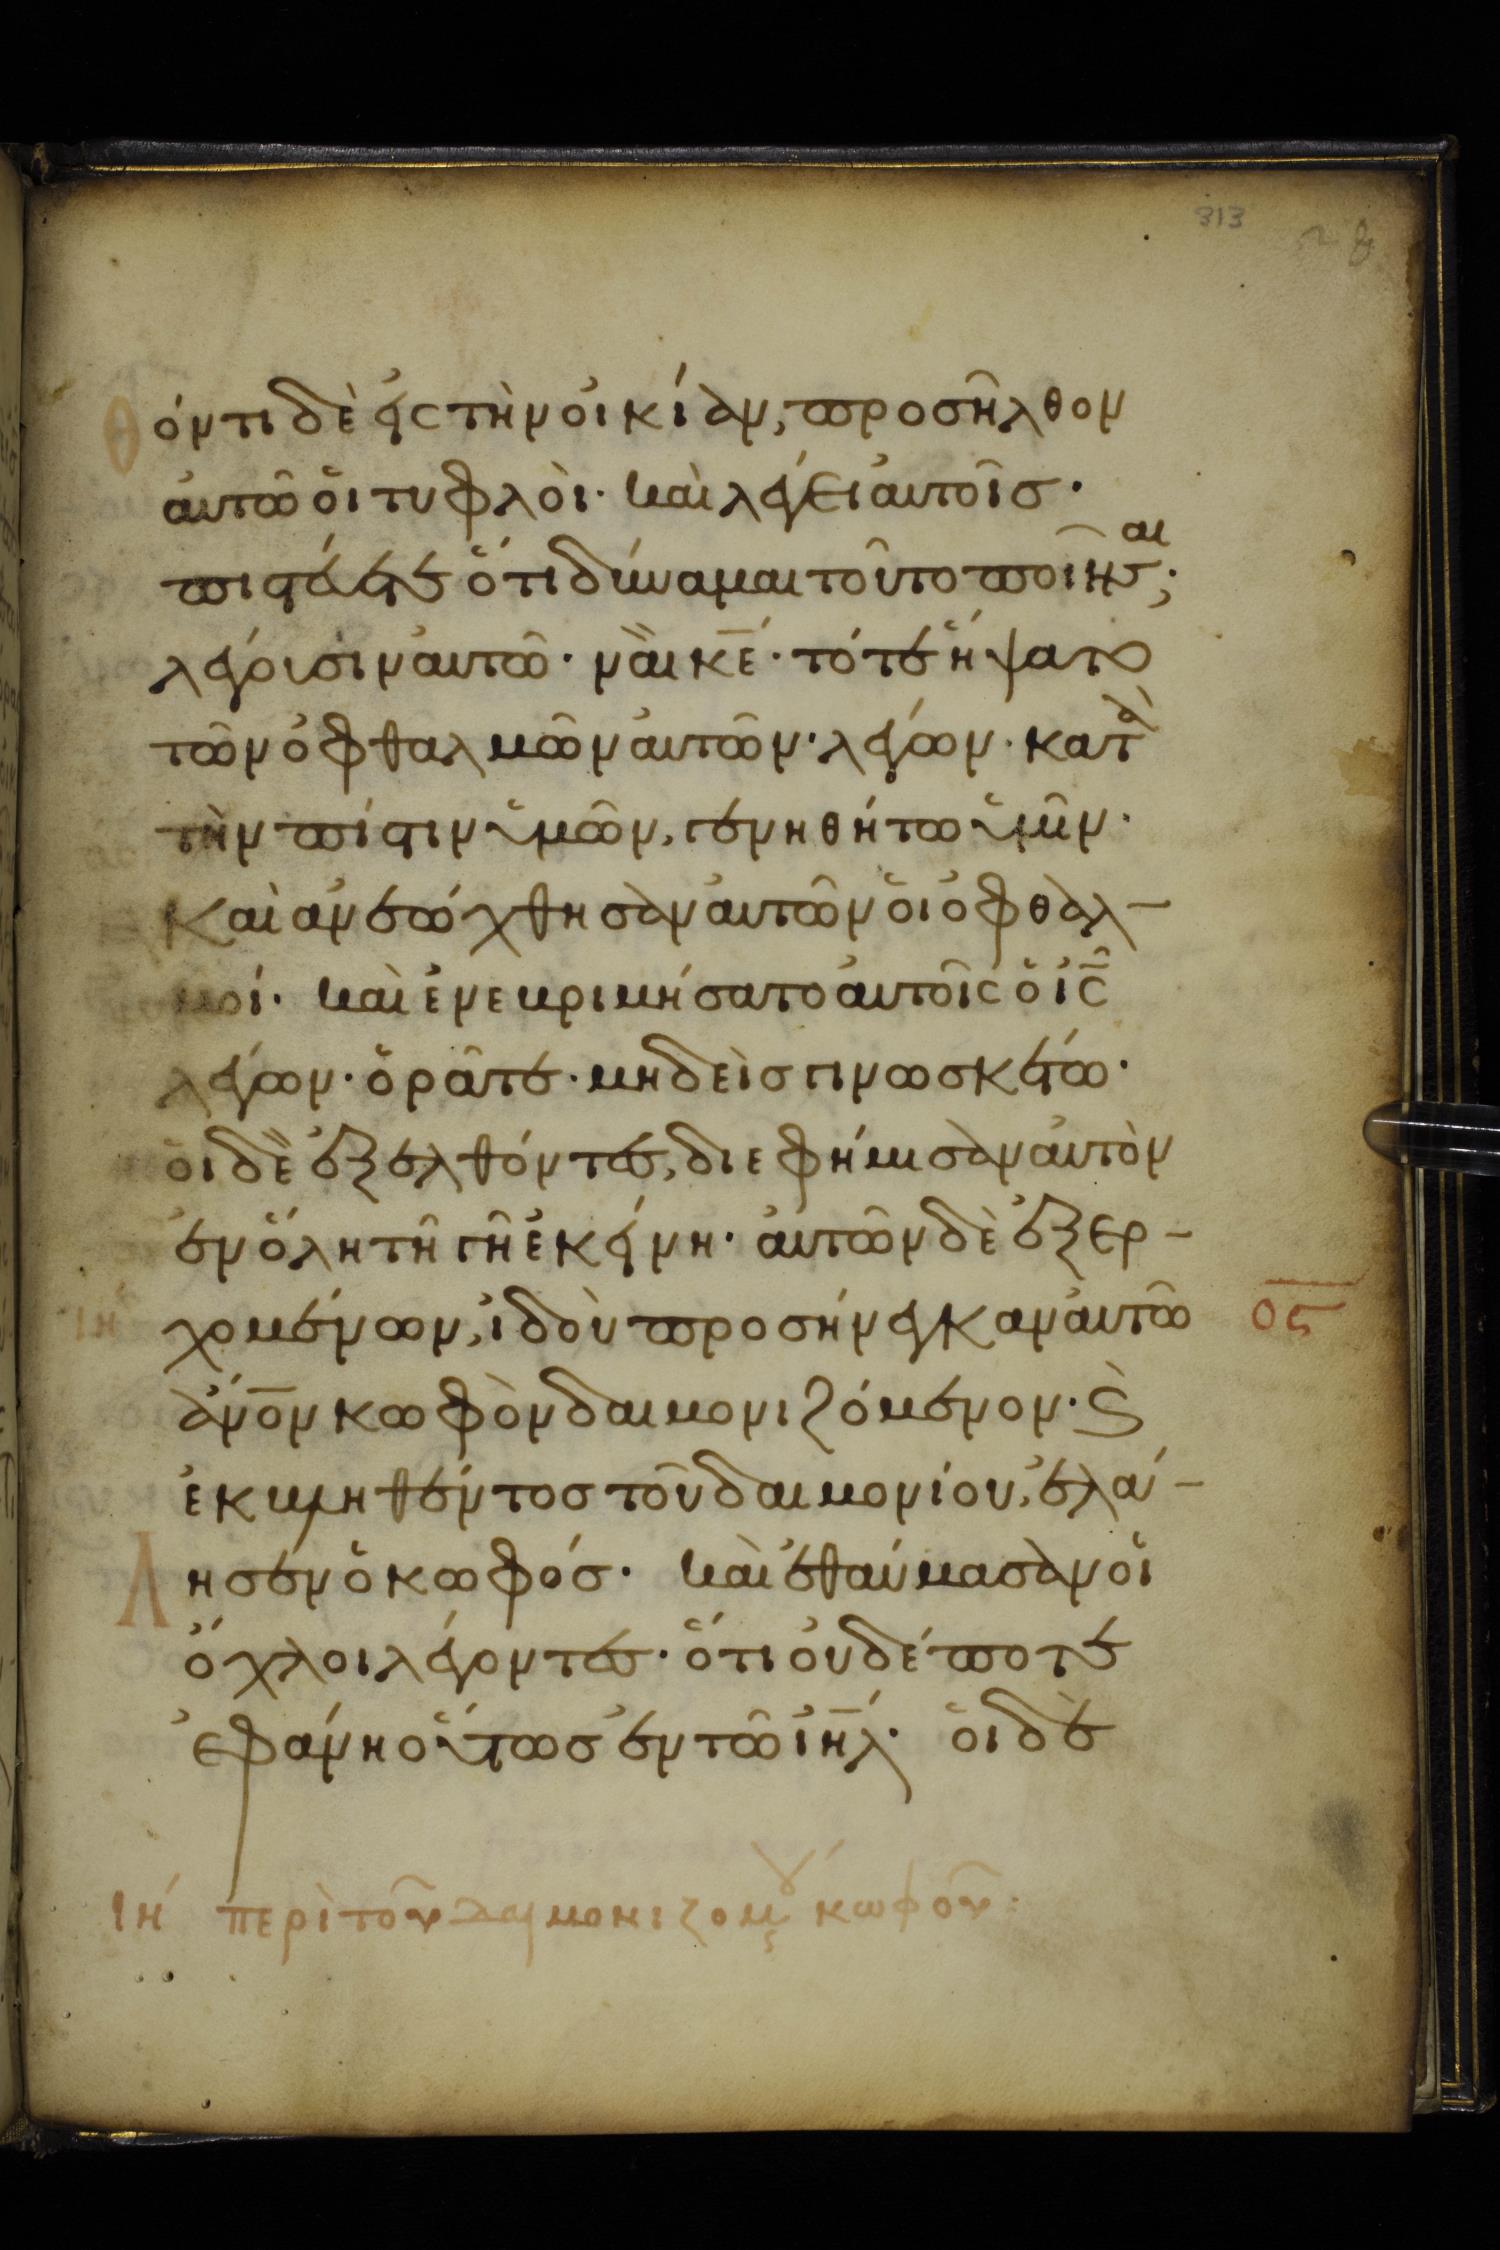 313
θόντι δὲ εἰς τὴν οἰκίαν, προσῆλθον
ἀυτῶ ὁι τυφλὸι· καὶ λέγει ἀυτοῖσ·
πιστέυετε ὅτι δύναμαι τοῦτο ποιῆσαι;
λέγουσιν ἀυτῶ· ναὶ κ̅ε· τότε ἥψατο
τῶν ὀφθαλμῶν ἀυτῶν· λέγων· κατὰ
τὴν πίστιν ὑμῶν, γενηθήτω ὑμῖν·
Καὶ ἀνεώχθησαν ἀυτῶν ὁι ὀφθαλ-
μοί· καὶ ἐνεβριμήσατο ἀυτοῖς ὁ ἰ̅ς
λέγων· ὁρᾶτε· μηδεὶσ γινωσκέτω·
ὁι δὲ ἐξελθόντες, διεφήμισαν ἀυτὸν
ἐν ὅλη τῆ γῆ ἐκείνη· ἀυτῶν δὲ ἐξερ-
ιη
χομένων, ἰδοὺ προσήνεγκαν ἀυτῶ
ο̅ς̅
ἄν̅ον κωφὸν δαιμονιζόμενον· ϗ
ἐκβληθέντοσ τοῦ δαιμονίου, ἐλά-
λησεν ὁ κωφόσ· καὶ ἐθαύμασαν ὁι
ὄχλοι λέγοντες· ὅτι ὀυδέποτε
ἐφάνη ὅυτωσ ἐν τῶ ἰη̅λ· ὁι δὲ
ιη περὶ τοῦ δαιμονιζομ κωφοῦ: